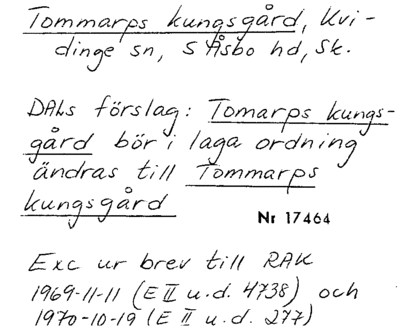 Tommarps kungsgård, Kvi-
dinge sn, S Åsbo hd, Sk.
DALs förslag: Tomarps kungs-
gård bör i laga ordning
ändras till Tommarps
kungsgård
Nr 17464
Exc ur brev till RAK
1969-11-11 (E II u.d. 4738) och
1970-10-19 (E II u.d. 277)